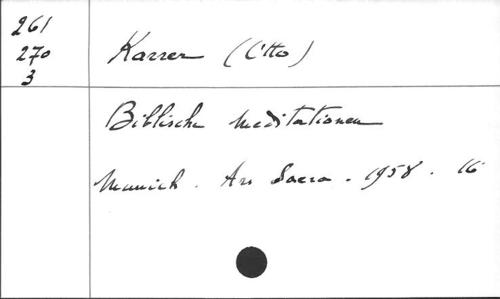 261
270
3
Karrer (Otto)
Biblische Meditationen
Munich. Ars Sacra. 1958. 16